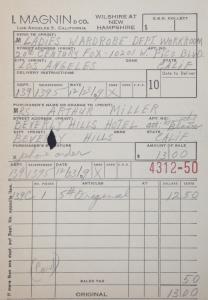 I. MAGNIN & CO.
LOS ANGELES 5, CALIFORNIA
WILSHIRE AT
NEW
HAMPSHIRE
SEND TO (PRINT)
M LADIES WARDROBE DEPT. WORKROOM
STREET ADDRESS (PRINT) APT. NO.
20th CENTURY FOX - 10201 W. PICO BLVD
CITY (PRINT) STATE
LOS ANGELES CALIF
DELIVERY INSTRUCTIONS
10
Date to Deliver
DEPT.
139 1395
PURCHASER'S NAME OR CHARGE TO (PRINT)
MRS ARTHUR MILLER
STREET ADDRESS (PRINT) APT. NO.
BEVERLY HILLS HOTEL
CITY (PRINT) STATE
BEVERLY HILLS CALIF
PURCHASER'S SIGNATURE AMOUNT OF SALE
phone order 13 00
DEPT.
4312-50
139 1395
NO. PIECES ARTICLES AT DOLLARS CENTS
139C 1 5th Original 12 50
SALES TAX 50
ORIGINAL 13 00